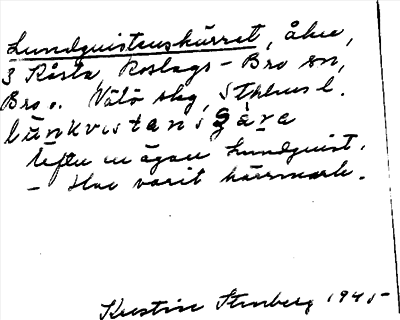 Lundquistenskärret, åker,
3 Råsta, Roslags-Bro sn,
Bro o. Vätö skg, Sthlms l.
länkvistans
Efter en ägare Lundquist.
- Har varit kärrmark.
Kerstin Stenberg 1945